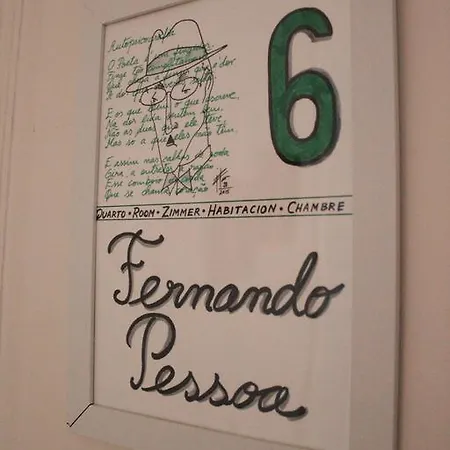 Autopsicografia
O Poeta é um fingidor.
Finge tão completamente
Que chega a fingir que é dor
A dor que deveras sente.
E os que lêem o que escreve,
Na dor lida sentem bem,
Não as duas que ele teve
Mas só a que eles não têm.
E assim nas calhas de roda
Gira, a entreter a razão
Esse comboio de corda
Que se chama coração
6
QUARTO • ROOM • ZIMMER • HABITACION • CHAMBRE
Fernando
Pessoa